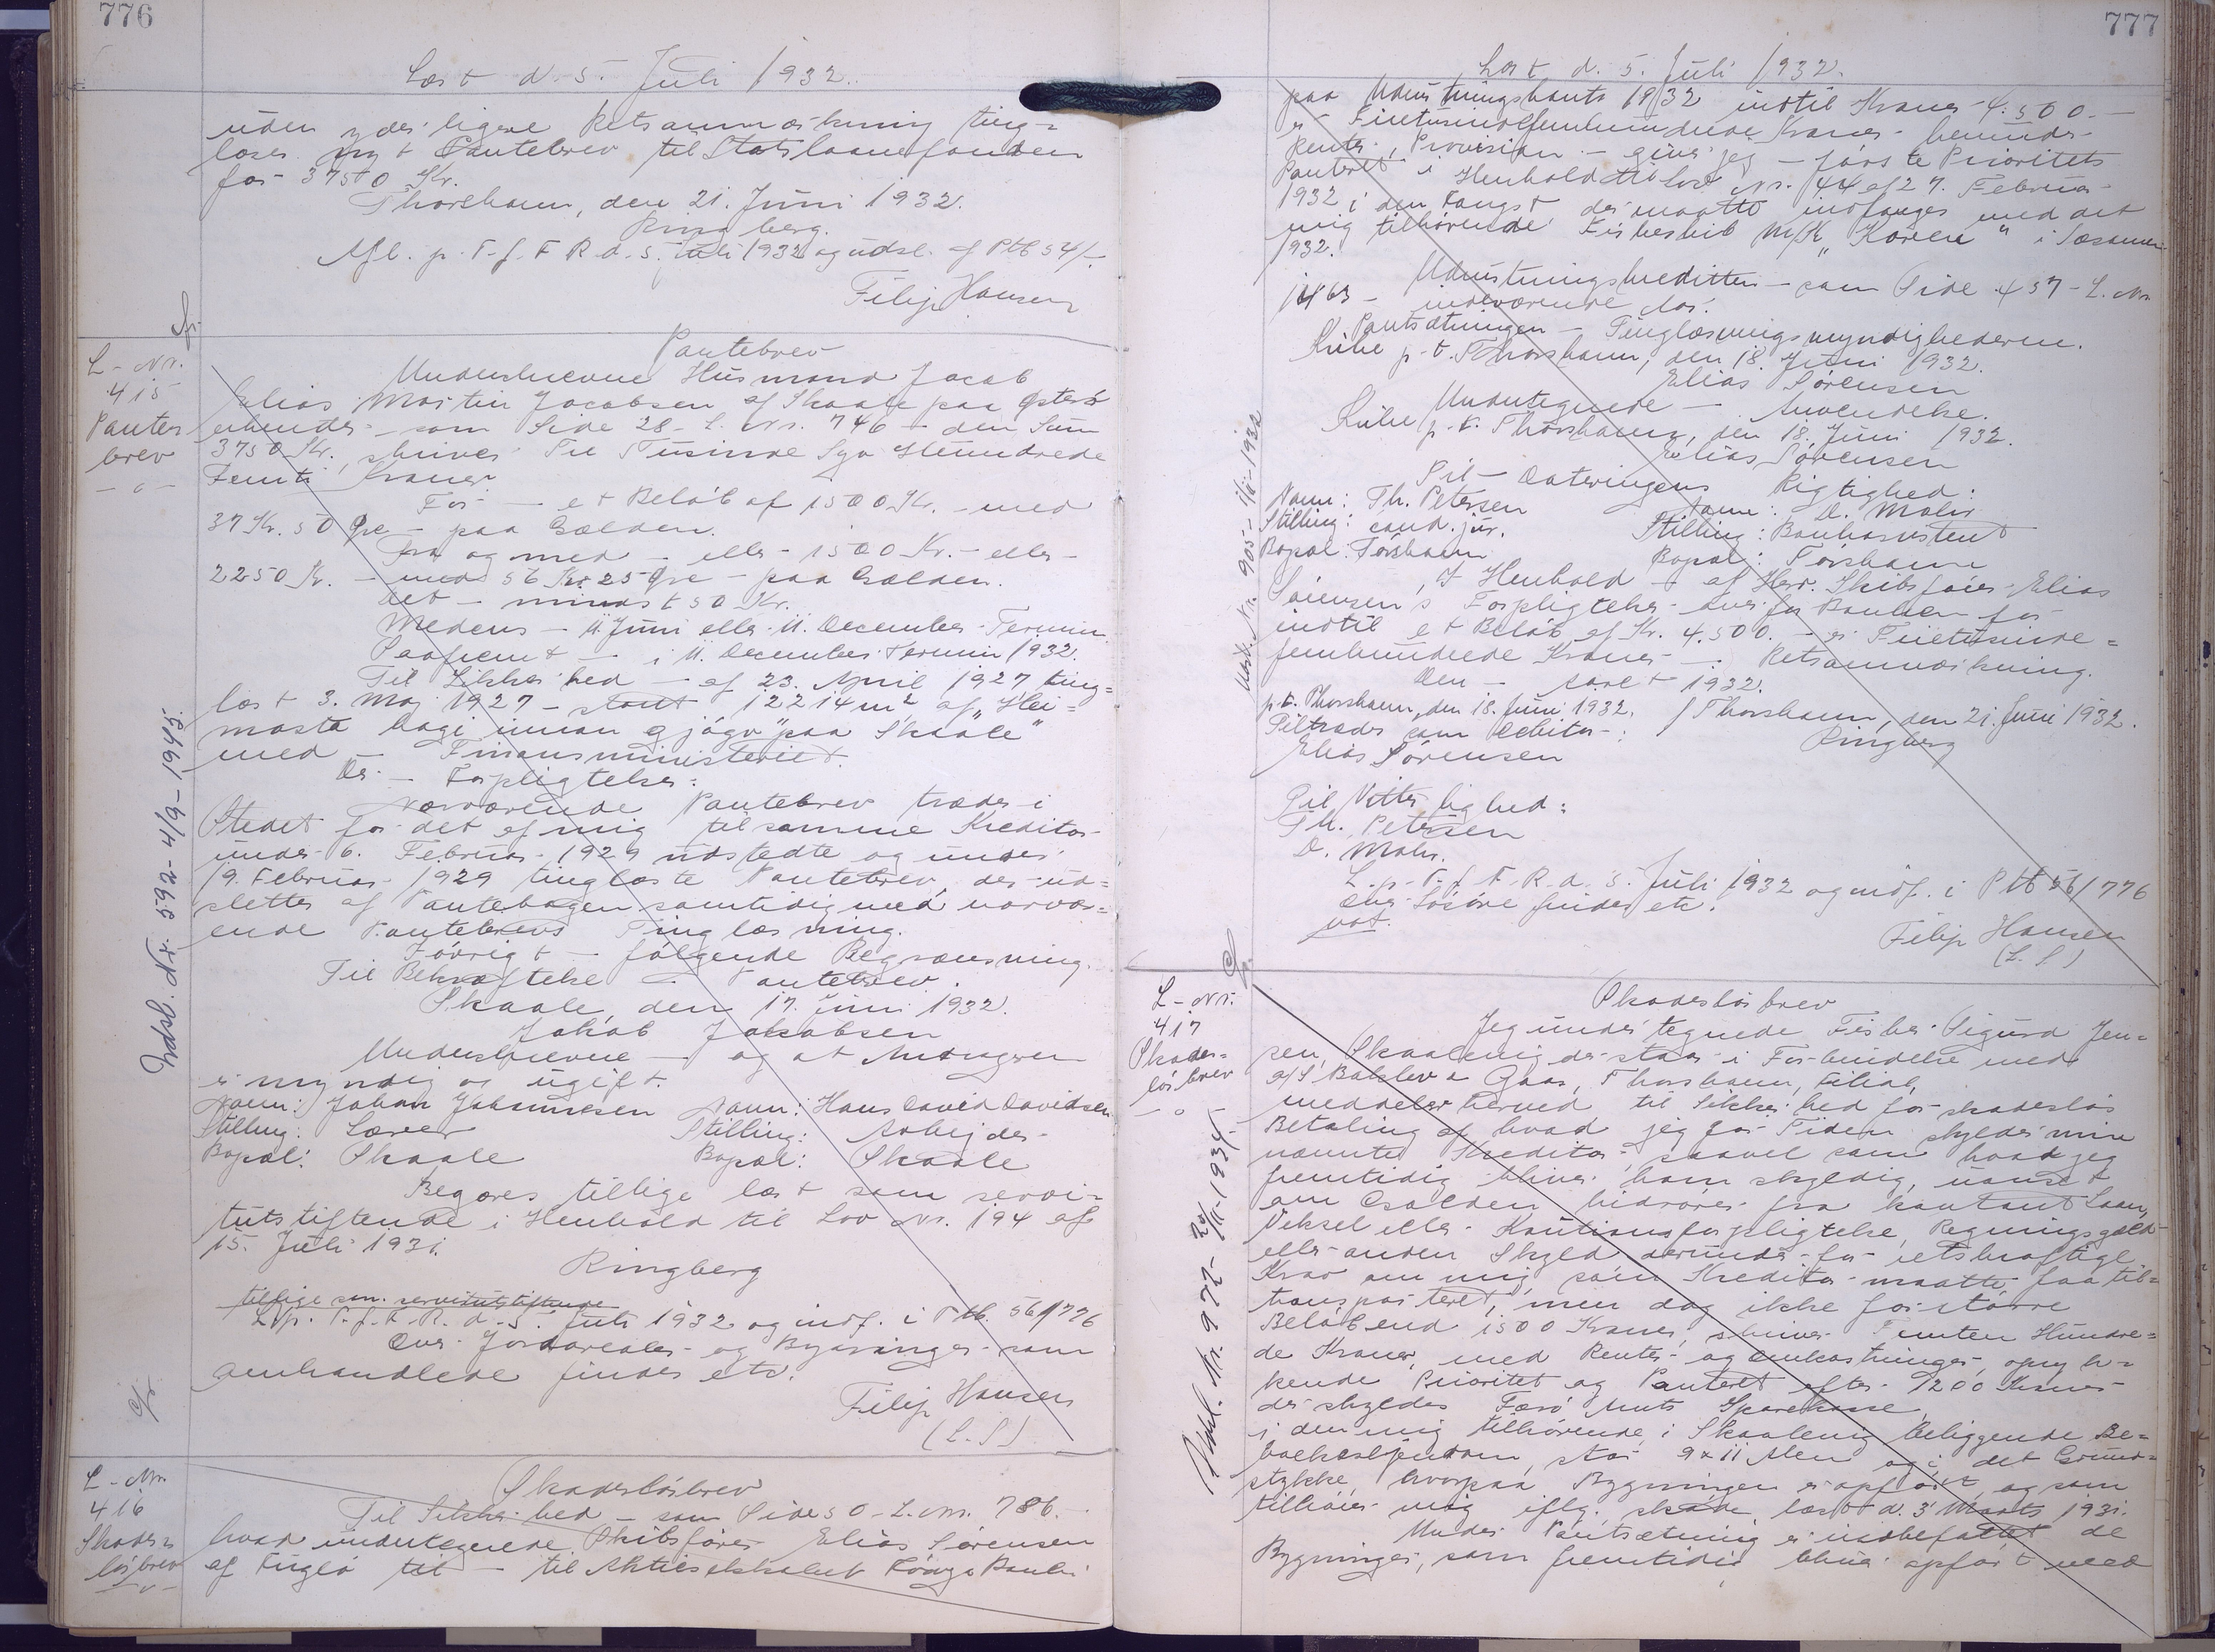 776
Læst d. 5. Juli 1932.
uden yderligere Retsanmærkning ting=
læses nyt Pantebrev til Statslaanefonden
for 3750 Kr.
Thorshavn, den 21. Juni 1932.
Ringberg.
Afl. p. T. f. F. R. d. 5. Juli 1932 og udsl. af Ptb 54/
Filip Hansen
L-Nr.
415
Pante=
brev
-o-
Udsl. Nr. 592-4/9-1945.
Pantebrev
Underskrevne Husmand Jacob
Elias Martin Jacobsen af Skaale paa Østerø
erkender - som Side 28 - L. Nr. 746 - den Sum
3750 Kr., skriver Tre Tusinde Syv Hundrede
Femti Kroner
For - et Beløb af 1500 Kr. - med
37 Kr. 50 Øre - paa Gælden.
fra og med - eller - 1500 Kr. - eller -
2250 Kr. - med 56 Kr. 25 Øre - paa Gælden.
det - mindst 50 Kr.
Medens - 11. Juni eller 11. December Termin
Paafient - i 11. December Termin 1932.
Til Sikkerhed - af 23. April 1927 ting=
læst 3. Maj 1927 - stort 12214 m² af "Hei=
masta hagi innan gjógv" paa Skaale"
med - Finansministeriet.
Der - Forpligtelser.
Nærværende Pantebrev træder i
Stedet for det af mig til samme Kreditor
under 6. Februar 1929 udstedte og under
19. Februar 1929 tinglæste Pantebrev, der ud=
slettes af Pantebogen samtidig med nærvær=
ende Pantebrevs Tinglæsning.
Iøvrigt - følgende Begrænsning.
Til Bekræftelse - Pantebrev.
Skaale, den 17. Juni 1932.
Jakob Jakobsen
Underskrevne - og at Udstederen
er myndig og ugift.
Navn: Johan Johannesen Navn: Hans David Davidsen
Stilling: Lærer Stilling: Arbejder
Bopæl: Skaale Bopæl: Skaale
Begæres tillige læst som servi=
tutstiftende i Henhold til Lov Nr. 194 af
15. Juli 1931.
Ringberg
tillige som servitutstiftende
L. p. T. f. F. R. d. 5. Juli 1932 og indf. i Ptb. 56/776
Over Jordarealer og Bygninger som
omhandlede findes etc.
Filip Hansen
(L. S.)
L-Nr.
416
Skades=
løsbrev
-o-
Skadesløsbrev
Til Sikkerhed - som Side 50 - L. Nr. 786 -
hvad undertegnede Skibsfører Elias Sørensen
af Fuglø til - til Aktieselskabet Föroya Banki
777
Læst d. 5. Juli 1932.
Udsl. Nr. 905-1/11-1932
paa Udrustningskonto 1932 indtil Kroner 4.500.-
er Firetusindefemhundrede Kroner - herunder
Renter, Provision - giver jeg - første Prioritets
Panteret i Henhold til Lov Nr. 44 af 27. Februar
1932 i den Fangst der maatte indfanges med det
mig tilhørende Fiskeskib M/K "Karen" i Sæsonen
1932.
Udrustningskreditten - som Side 457 - L. Nr.
1463 - indeværende Aar.
Pantsætningen - Tinglæsningsmyndighederne.
Kirke p.t. Thorshavn, den 18. Juni 1932.
Elias Sørensen
Undertegnede - Anvendelse.
Kirke p.t. Thorshavn, den 18. Juni 1932.
Elias Sørensen
Til - Dateringens Rigtighed:
Navn: Th. Petersen Navn: D. Mohr
Stilling: cand. jur. Stilling: Bankassistent
Bopæl: Tórshavn Bopæl: Tórshavn
I Henhold - af Herr Skibsfører Elias
Sørensen's Forpligtelser overfor Banken for
indtil et Beløb af Kr. 4.500. - er Firetusinde=
femhundrede Kroner - : Retsanmærkning.
Den - Aaret 1932.
p.t. Thorshavn, den 18. Juni 1932. / Thorshavn, den 21. Juni 1932.
Tiltrædes som Debitor: Ringberg
Elias Sørensen
Til Vitterlighed:
Th. Petersen
D. Mohr.
L. p. T. f. F. R. d. 5. Juli 1932 og indf. i Ptb 56/776
Over Løsøre findes etc.
not.
Filip Hansen
(L. S.)
L-Nr.
417
Skades=
løsbrev
-o-
Udsl. Nr. 972- /11-1934.
Skadesløsbrev
Jeg undertegnede Fisker Sigurd Jen=
sen, Skaalevig der staar i Forbindelse med
A/S Balslev & Gaas, Thorshavn, Filial,
meddeler herved til Sikkerhed for skadesløs
Betaling af hvad jeg for Tiden skylder min
nævnte Kreditor saavel som hvad jeg
fremtidig bliver ham skyldig, uanset
om Gælden hidrører fra kontant Laan,
Veksel eller Kautionsforpligtelse, Regningsgæld
eller anden Skyld derunder for retskraftige
Krav om mig som Kreditor maatte faa til=
transporteret, men dog ikke for større
Beløb end 1500 Kroner, skriver Femten Hundre=
de Kroner, med Renter og Omkostninger, opryk=
kende Prioritet og Panteret efter 1200 Kroner
der skyldes Færø Amts Sparekasse,
i den mig tilhørende i Skaalevig beliggende Be=
boelsesejendom, stor 9 x 11 Alen og i det Grund=
stykke, hvorpaa Bygningen er opført, og som
tilhører mig iflg. skøde, læst d. 3. Marts 1931.
Under Pantsætning er indbefattet de
Bygninger, som fremtidig bliver opført med